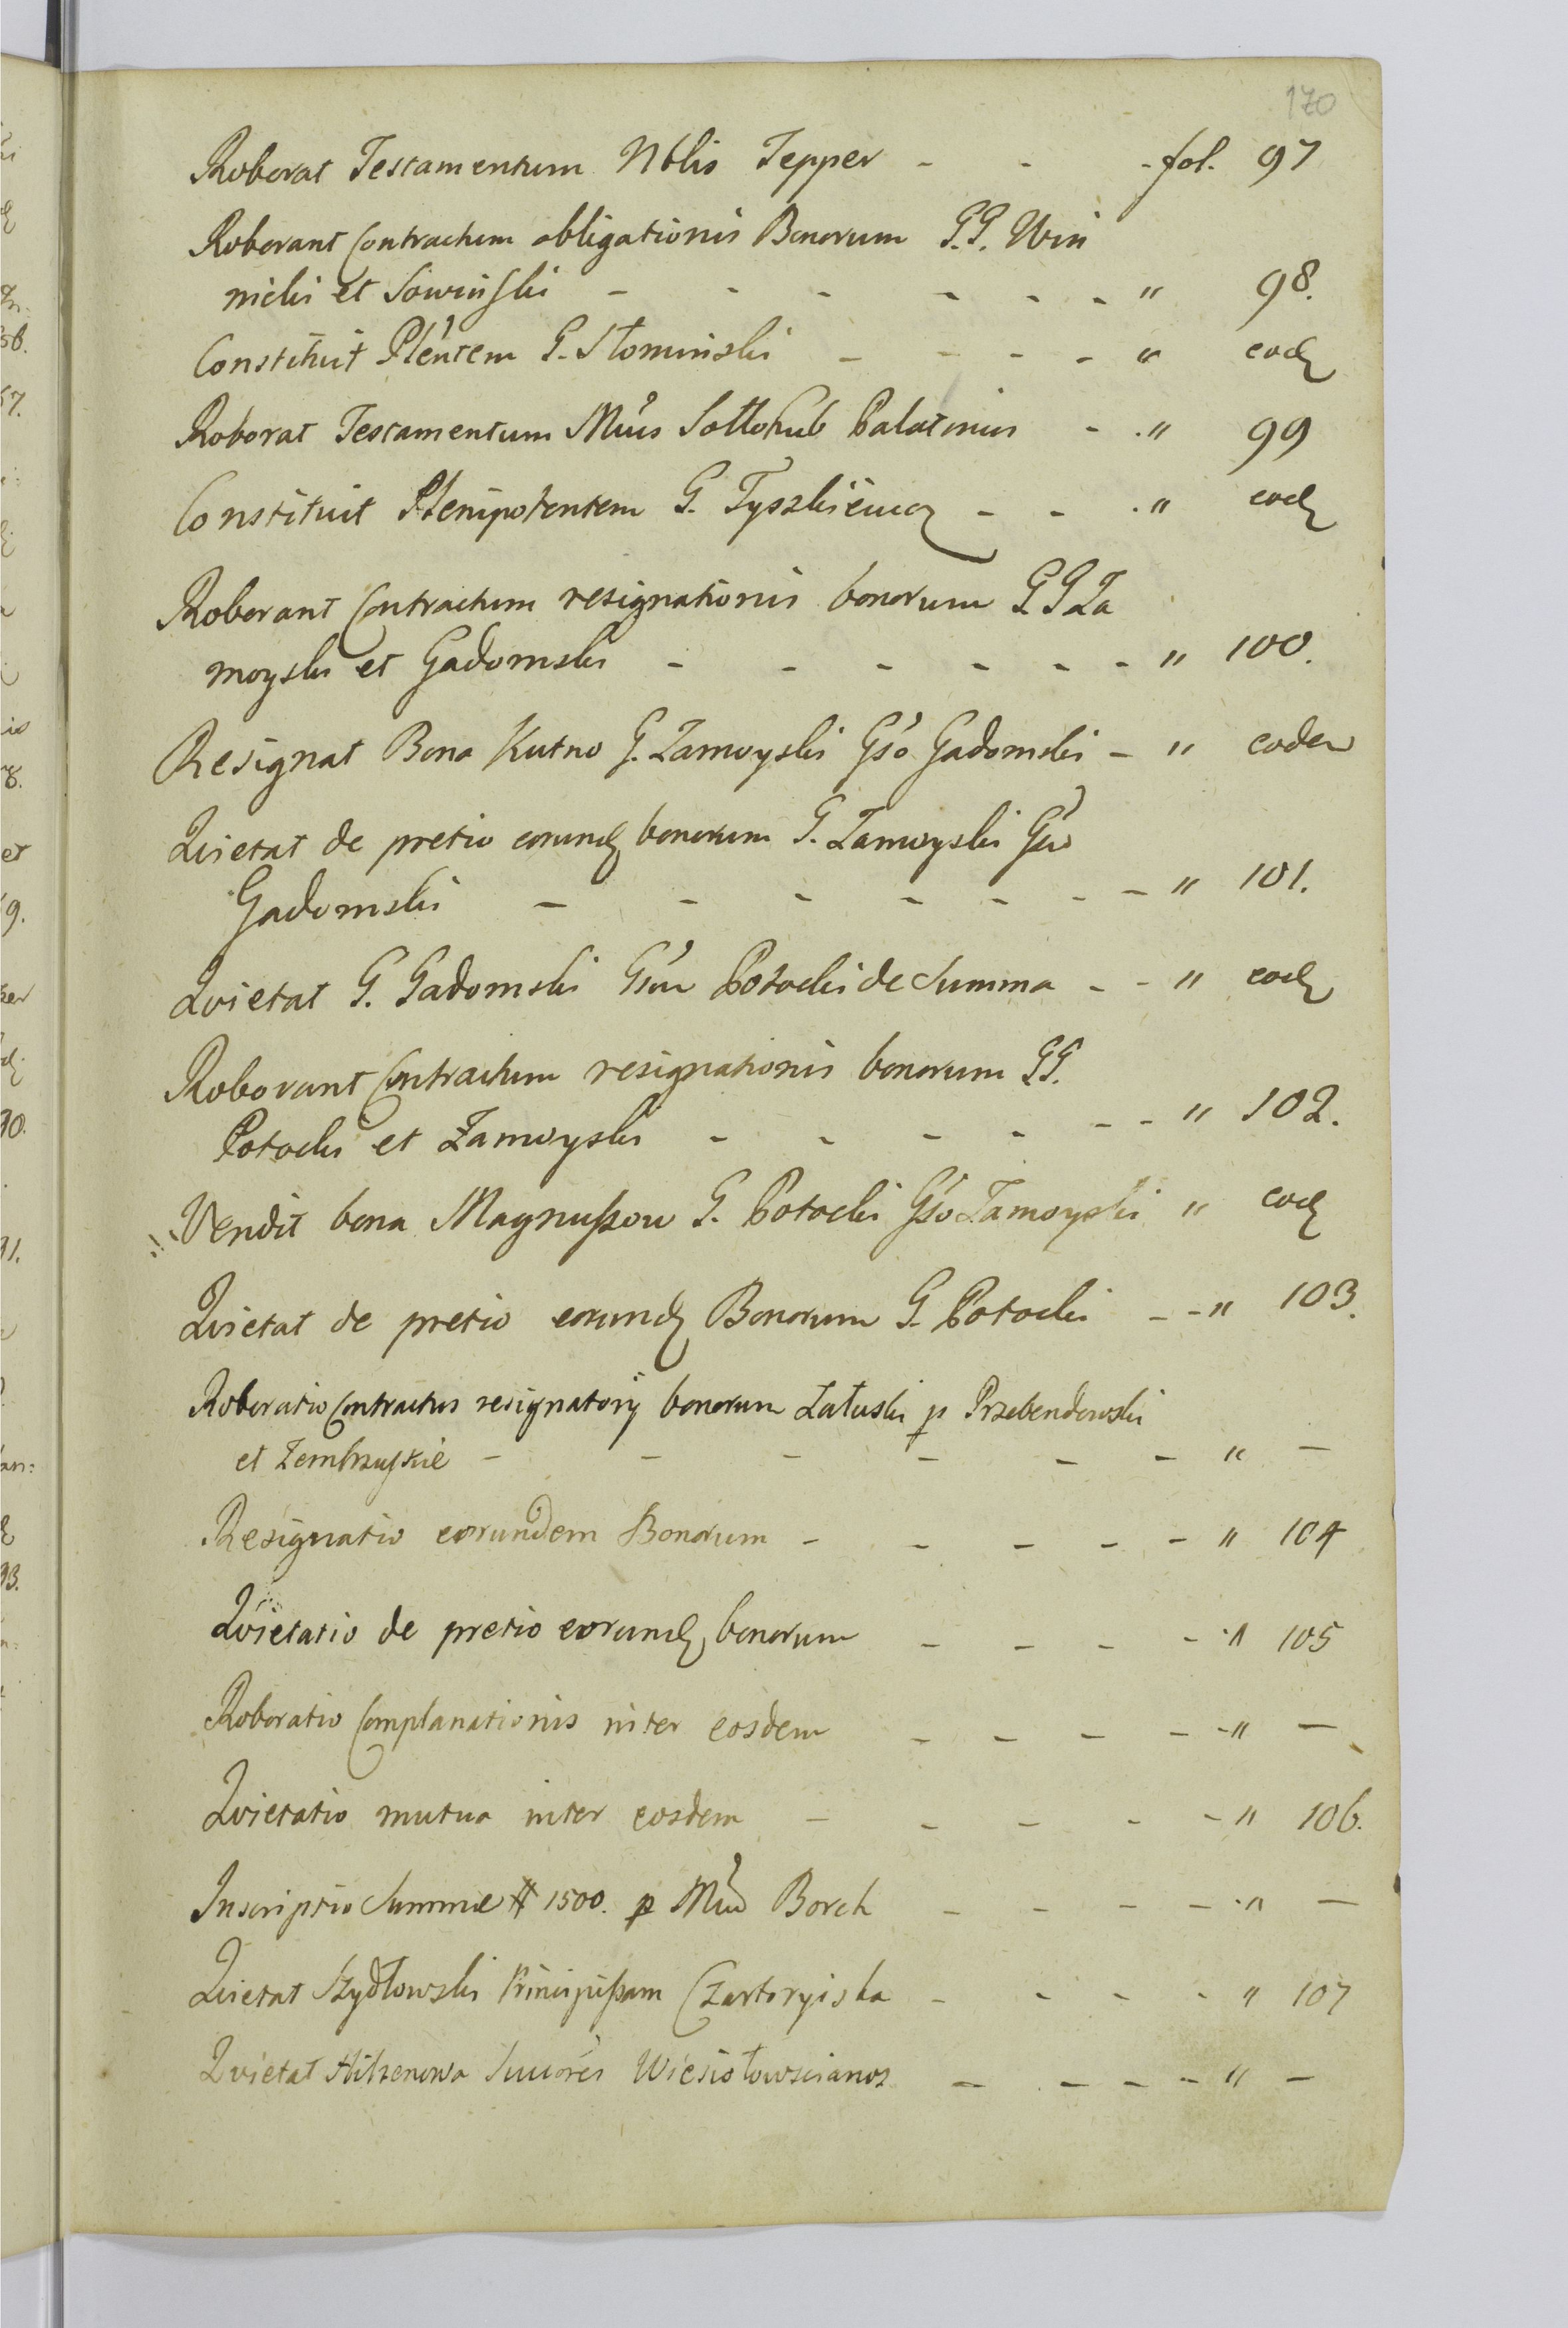 170
Roborat Testamentum Nblis Tepper - - - fol. 97
Roborant Contractum obligationis Bonorum G.G. Win
nicki et Sowinski - - - - - - " 98.
Constituit Plentem G. Słominski - - - - " eod
Roborat Testamentum Mĩus Sołłohub Palatinus - - " 99
Constituit Plenipotentem G. Tyszkiewicz - - - " eod
Roborant Contractum resignationis bonorum G G Za
moyski et Gadomski - - - - - - " 100.
Resignat Bona Kutno G. Zamoyski Gso Gadomski - " eodem
Quietat de pretio eorund bonorum G. Zamoyski Gso
Gadomski - - - - - - - " 101.
Quietat G. Gadomski Gsum Potocki de Summa - - " eod
Roborant Contractum resignationis bonorum GG.
Potocki et Zamoyski - - - - - - " 102.
Vendit bona Magnuszow G. Potocki Gso Zamoyski " eod
Quietat de pretio eorund Bonorum G. Potocki - - " 103.
Roboratio Contractus resignatorij bonorum Załuski p Przebendowski
et Zembrzuskie - - - - - - " -
Resignatio eorundem Bonorum - - - - - " 104
Quietatio de pretio eorund bonorum - - - - " 105
Roboratio Complanationis inter eosdem - - - - - " -
Quietatio mutua inter eosdem - - - - - " 106.
Inscriptio Summæ # 1500. p Mũm Borch - - - - " -
Quietat Szydłowski Principissam Czartoryiska - - - - " 107
Quietat Hilzenowa Succores Wiesiołowscianos - - - - " -